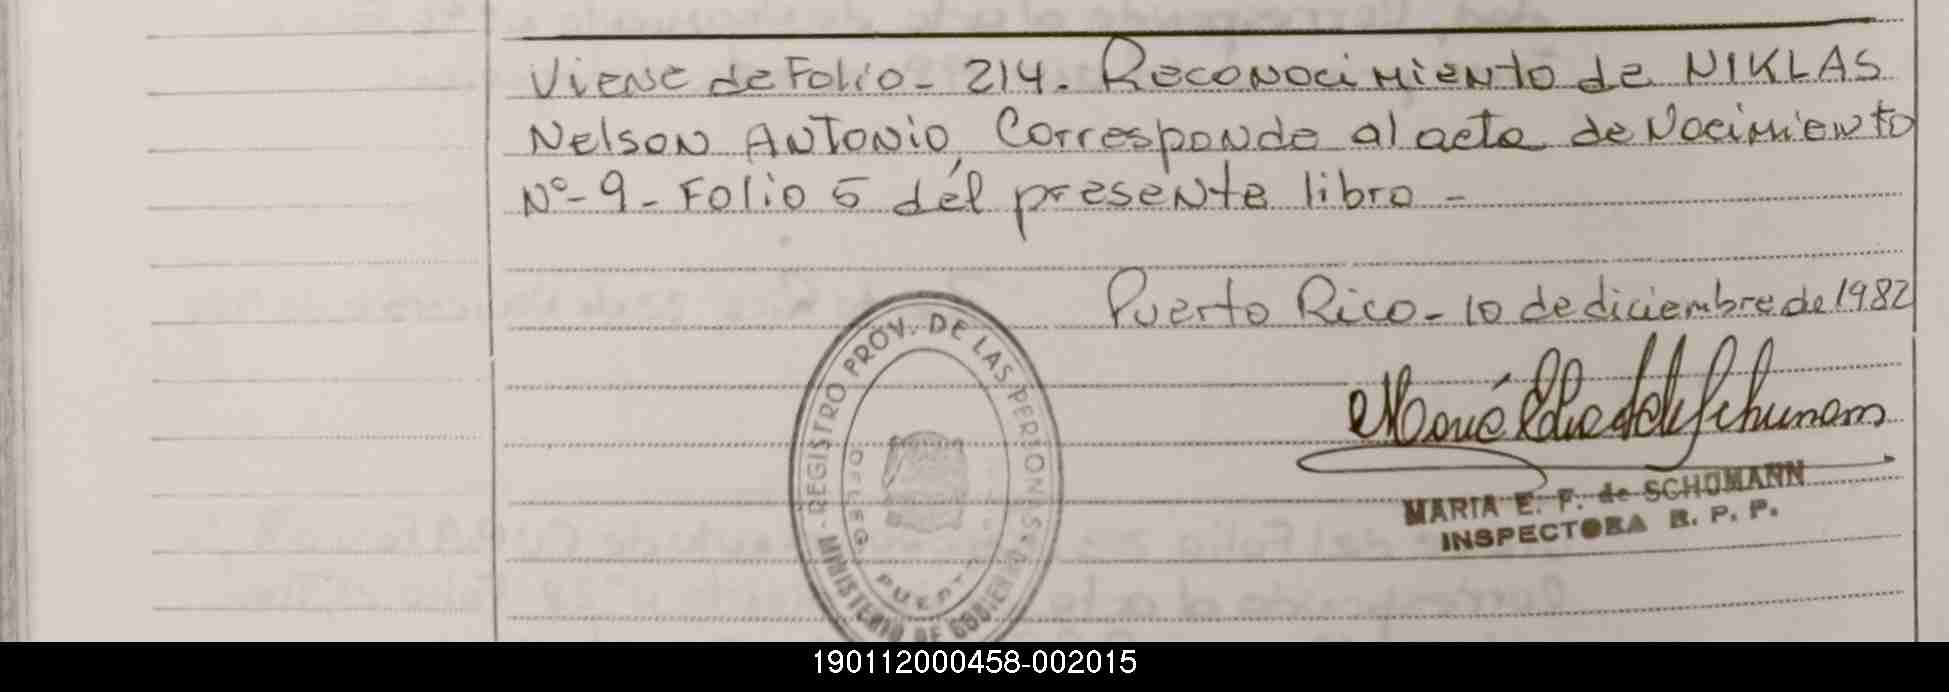 Viene de Folio - 214. Reconocimiento de NIKLAS
Nelson Antonio, Corresponde al acta de Nacimiento
Nº - 9 - Folio 5 del presente libro -
Puerto Rico - 10 de diciembre de 1982
REGISTRO PROV. DE LAS PERSONAS
MINISTERIO DE GOBIERN
DELEG. PUERT
MARIA E. F. de SCHUMANN
INSPECTORA R. P. P.
190112000458-002015